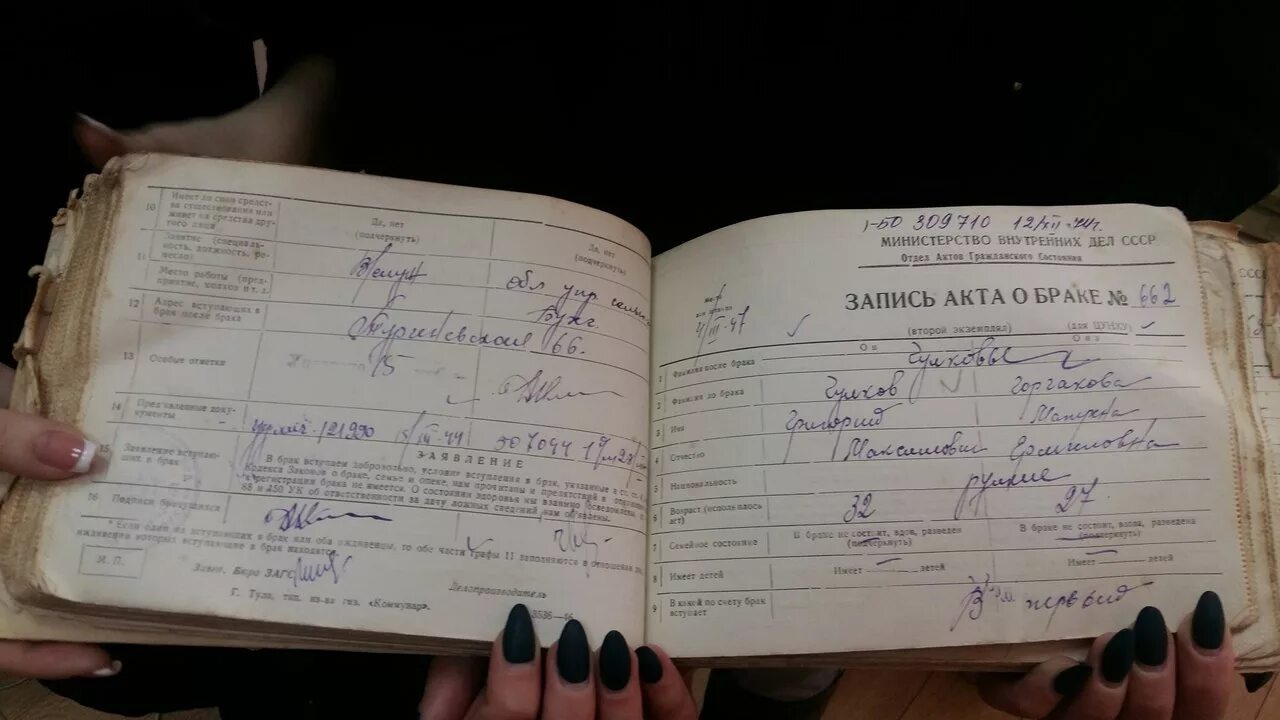 10 Имеет ли свои средства существования или живет на средства другого лица
Да, нет
(подчеркнуть)
Да, нет
(подчеркнуть)
11 Занятие (специальность, должность, ремесло)
Место работы (предприятие, колхоз и т. д.
обл упр
Бухг.
12 Адрес вступающих в брак после брака
Тургеневская 66.
13 Особые отметки
15
14 Пред'явленные документы
15 Заявление вступающих в брак
ЗАЯВЛЕНИЕ
В брак вступаем добровольно, условия вступления в брак, указанные в ст. ст.
Кодекса Законов о браке, семье и опеке, нам прочитаны и препятствий в отношении
регистрации брака не имеется. О состоянии здоровья мы взаимно осведомлены,
88 и 450 УК об ответственности за дачу ложных сведений нам об'явлены.
16 Подписи брачущихся
* Если один из вступающих в брак или оба иждивенцы, то обе части графы 11 заполняются в отношении лиц,
иждивении которых вступающие в брак находятся.
М. П.
Завед. Бюро ЗАГС
Делопроизводитель
Г. Тула, тип. из-ва газ. «Коммунар».
I-БО 309710 12/XII-74г.
МИНИСТЕРСТВО ВНУТРЕННИХ ДЕЛ СССР
Отдел Актов Гражданского Состояния
ЗАПИСЬ АКТА О БРАКЕ № 662
4/III-47
(второй экземпляр) (для ЦУНХУ)
Он Она
1 Фамилия после брака Чулковы
2 Фамилия до брака Чулков Горгакова
3 Имя Григорий Матрена
4 Отчество Максимович Ермиловна
5 Национальность русские
6 Возраст (исполнилось лет) 32 27
7 Семейное состояние
В браке не состоит, вдов, разведен
(подчеркнуть)
В браке не состоит, вдова, разведена
(подчеркнуть)
8 Имеет детей Имеет — детей Имеет — детей
9 В какой по счету брак вступает
В первый